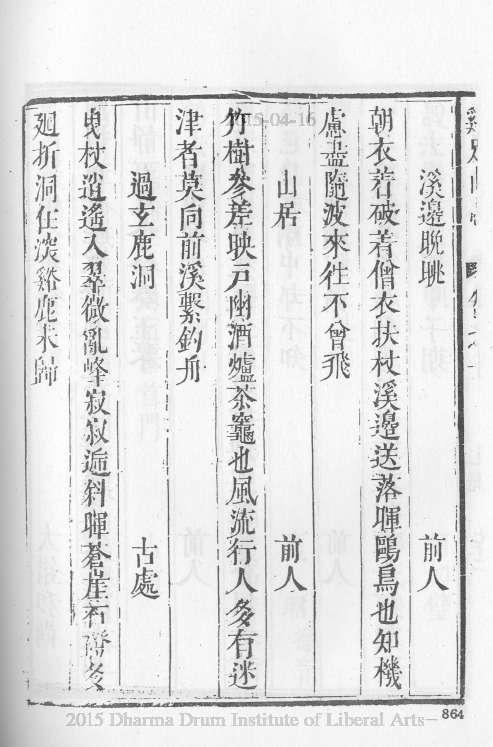 溪邊晚眺 前人
朝衣着破着僧衣扶杖溪邊送落暉鷗鳥也知機
慮盡隨波來往不曾飛
山居 前人
竹樹參差映戸幽酒爐茶竈也風流行人多有迷
津者莫向前溪繫釣舟
過玄鹿洞 古處
曳杖逍遙入翠微亂峰寂寂逅斜暉蒼崖石磴多
廻折洞在深谿鹿未歸
15-04-16
864
2015 Dharma Drum Institute of Liberal Arts